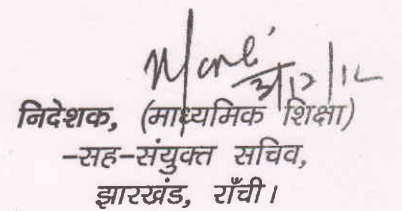 3/12/12
निदेशक, (माध्यमिक शिक्षा)
-सह-संयुक्त सचिव,
झारखंड, राँची।